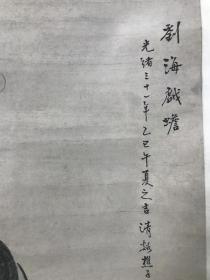 劉海戲蟾
光緒三十一年乙巳午夏之吉清谿樵子